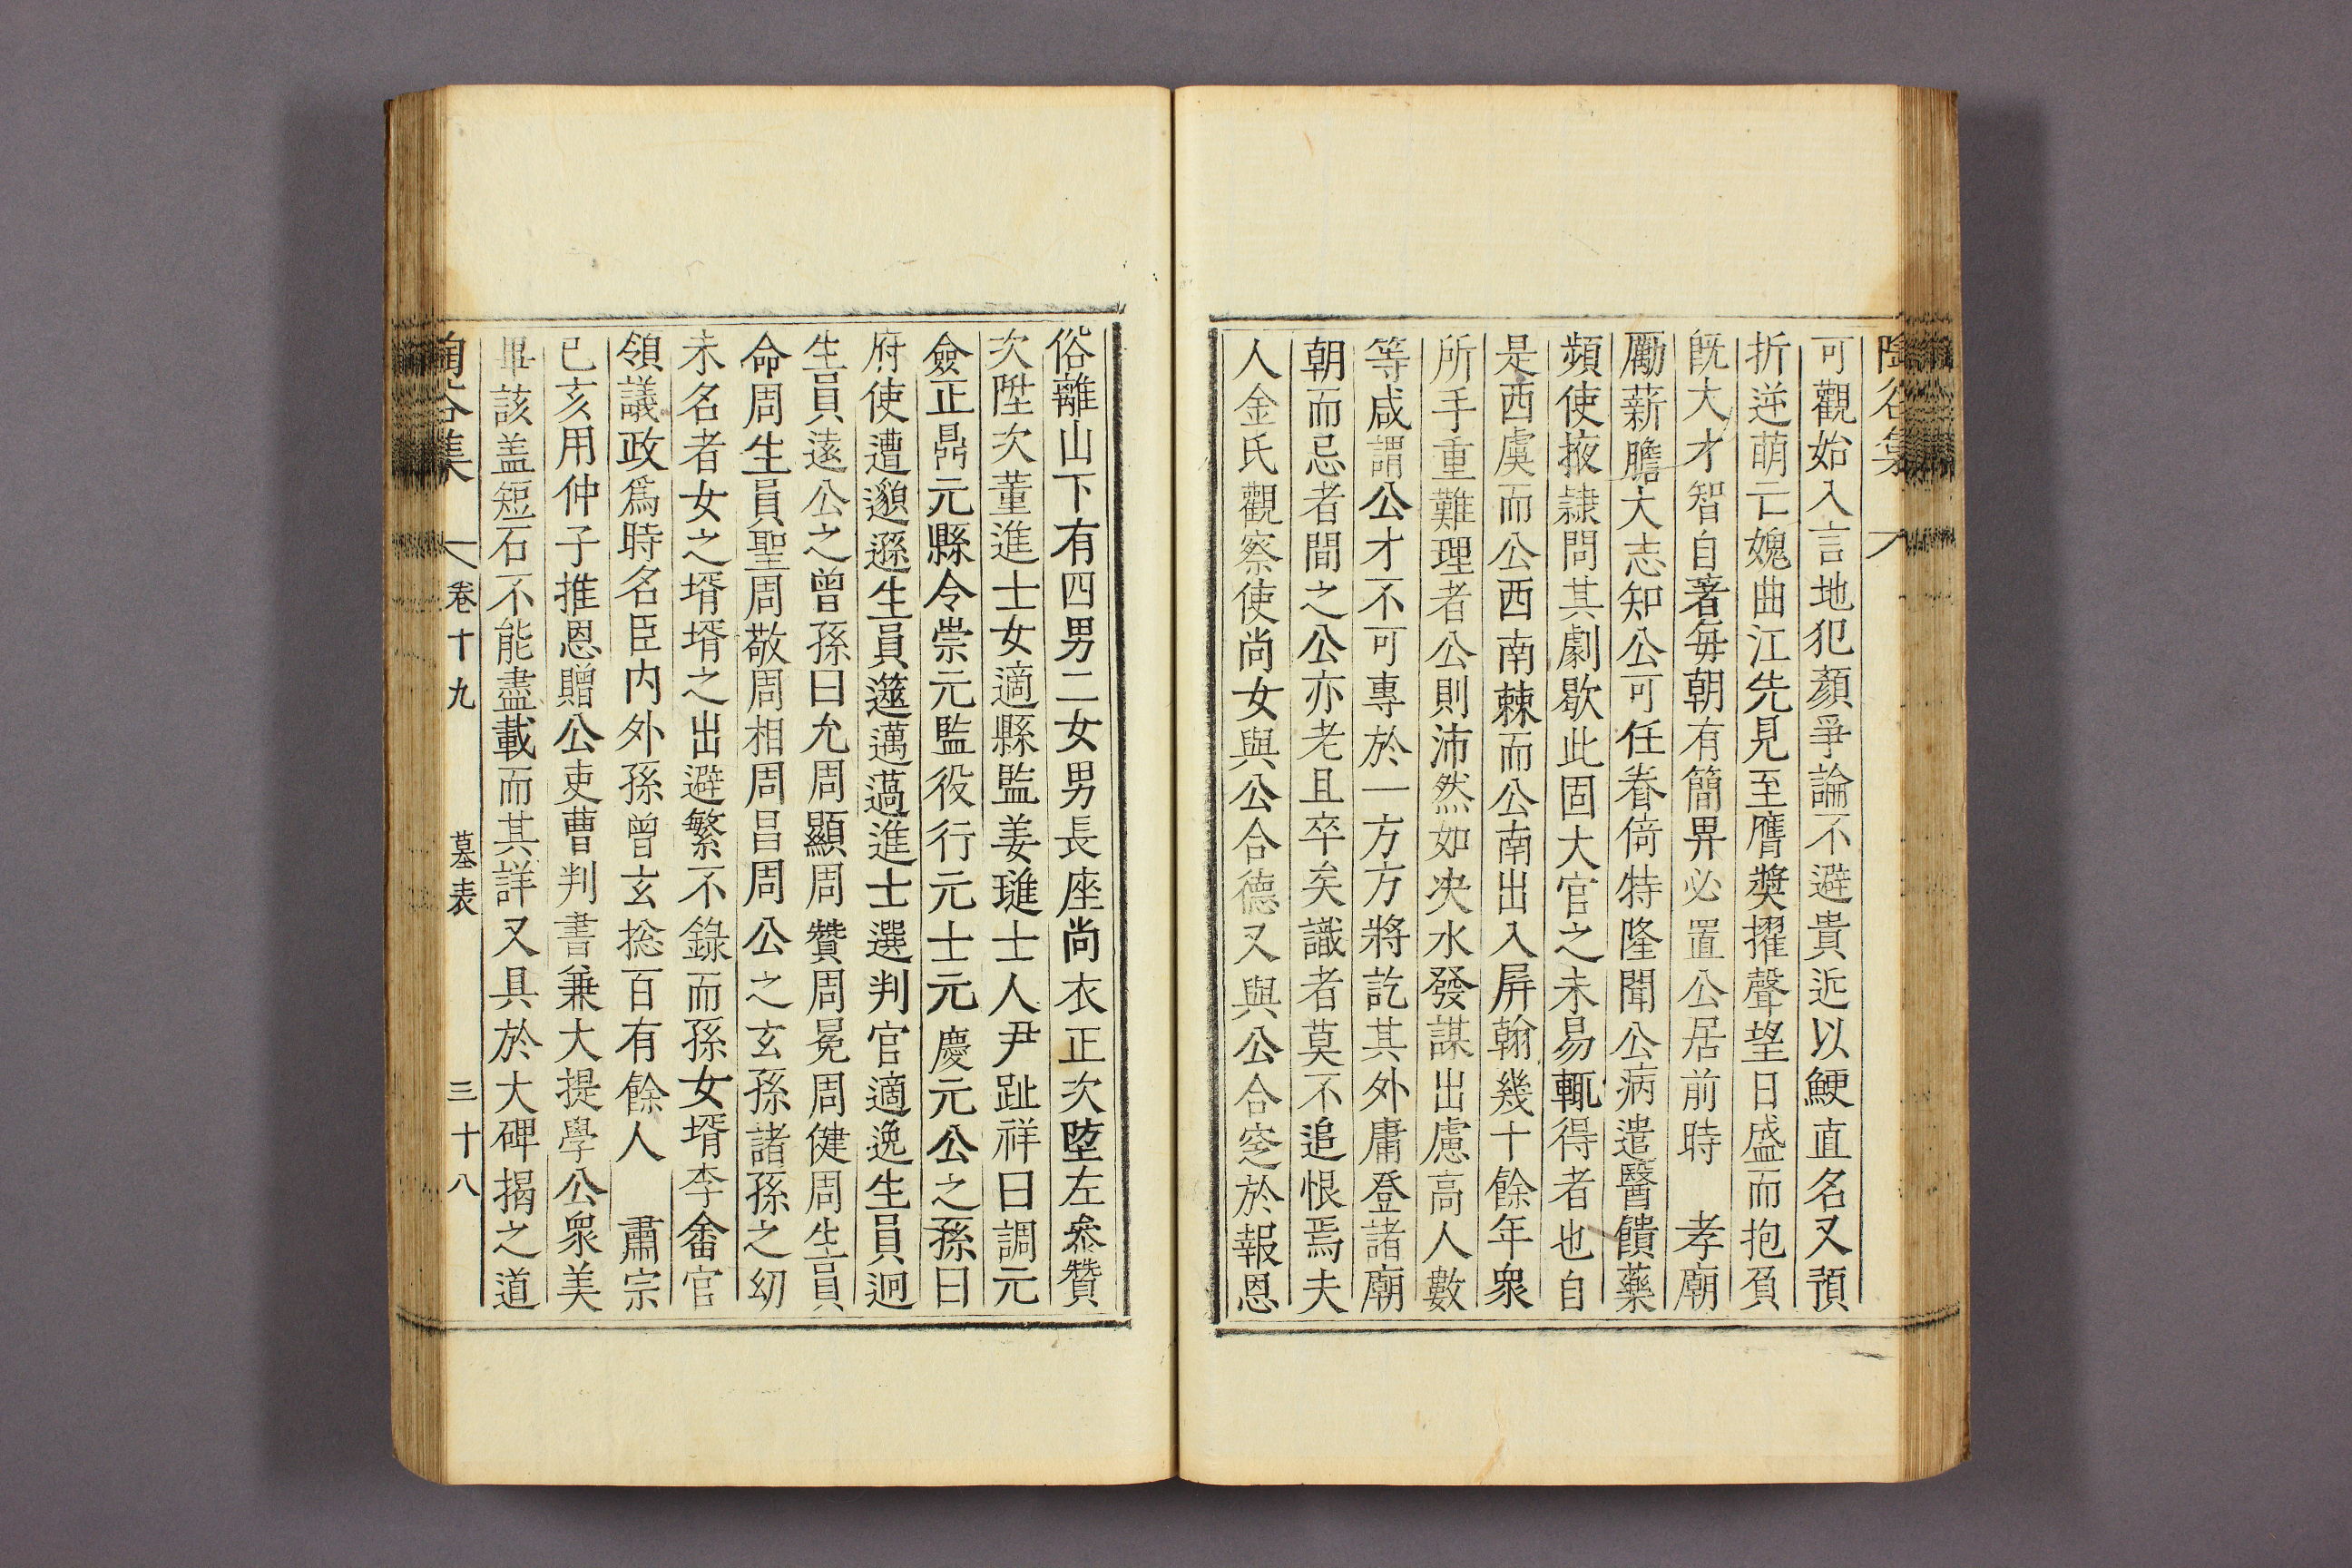 陶谷集
可觀始入言地犯顏爭論不避貴近以鯁直名又預
折逆萌亡媿曲江先見至膺奬擢聲望日盛而抱負
旣大才智自著每朝有簡畀必置公居前時　孝廟
勵薪膽大志知公可任眷倚特隆聞公病遣醫饋藥
頻使掖隷問其劇歇此固大官之未易輒得者也自
是西虞而公西南棘而公南出入屛翰幾十餘年衆
所手重難理者公則沛然如决水發謀出慮高人數
等咸謂公才不可專於一方方將訖其外庸登諸廟
朝而忌者間之公亦老且卒矣識者莫不追恨焉夫
人金氏觀察使尚女與公合德又與公合窆於報恩
俗離山下有四男二女男長座尚衣正次埅左叅贊
次陞次董進士女適縣監姜璡士人尹趾祥曰調元
僉正鼎元縣令崇元監役行元士元慶元公之孫曰
府使遭邈遜生員邃邁薖進士選判官適逸生員迥
生員遠公之曾孫曰允周顯周贊周冕周健周生員
命周生員聖周敬周相周昌周公之玄孫諸孫之幼
未名者女之壻壻之出避繁不錄而孫女壻李畬官
領議政爲時名臣內外孫曾玄摠百有餘人　肅宗
己亥用仲子推恩贈公吏曹判書兼大提學公衆美
畢該盖短石不能盡載而其詳又具於大碑揭之道
陶谷集　卷十九　墓表　三十八